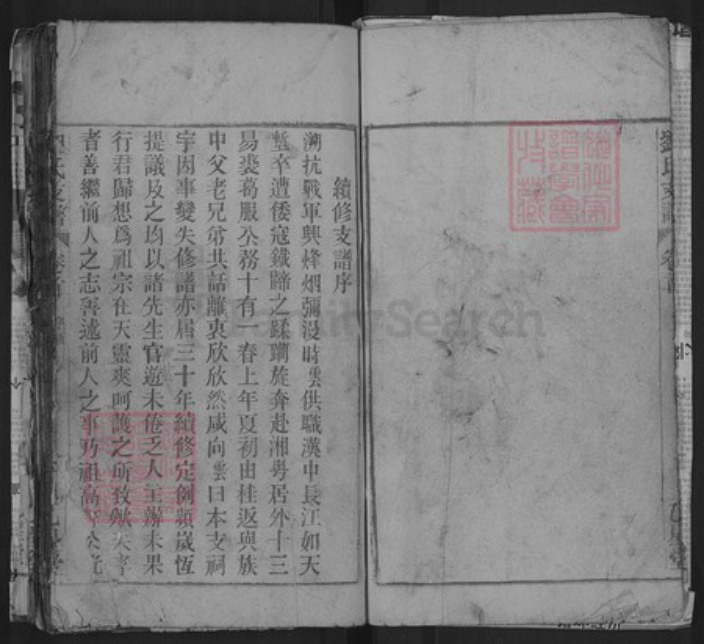 續修支譜序
溯抗戰軍興烽烟彌漫時雲供職漢中長江如天
塹卒遭倭寇鐵蹄之蹂躪旋奔赴湘粵居外十三
易裘葛服公務十有一春上年夏初由桂返與族
中父老兄弟共話離衷欣欣然咸向雲曰本支祠
宇因事變失修譜亦屆三十年續修定例頻歲恆
提議及之均以諸先生官遊未倦乏人主辦未果
行君歸想爲祖宗在天靈爽呵護之所致歟夫孝
者善繼前人之志善述前人之事乃祖高 公光
氏支譜 卷首
劉氏支譜 卷首
FamilySearch